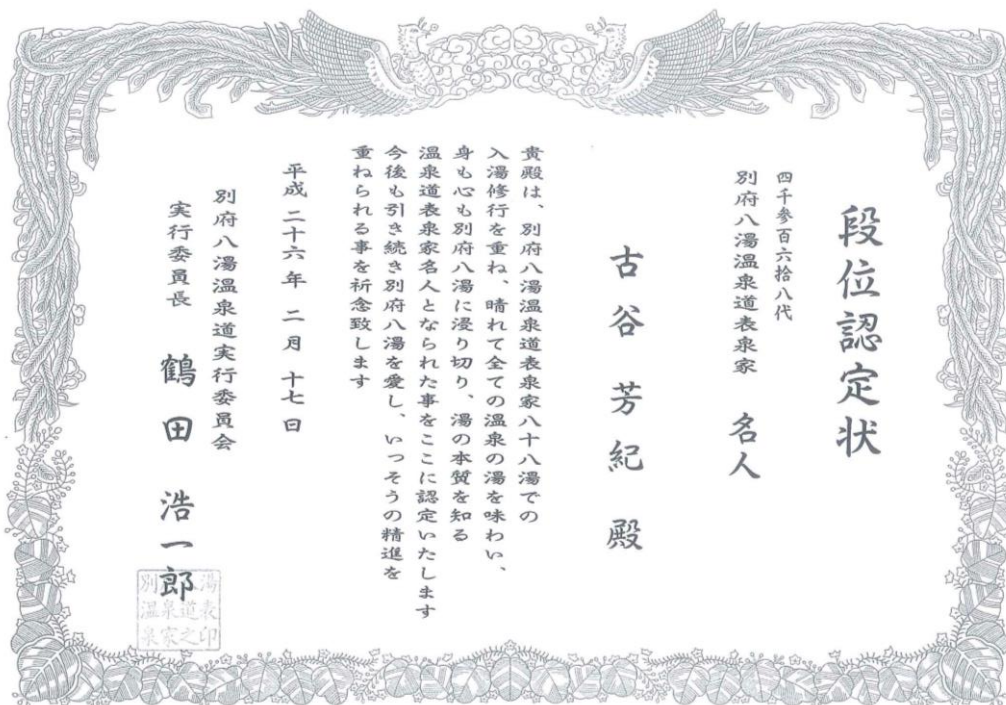 段位認定状
四千参百六拾八代
別府八湯温泉道表泉家 名人
古谷 芳紀 殿
貴殿は、別府八湯温泉道表泉家八十八湯での
入湯修行を重ね、晴れて全ての温泉の湯を味わい、
身も心も別府八湯に浸り切り、湯の本質を知る
温泉道表泉家名人となられた事をここに認定いたします
今後も引き続き別府八湯を愛し、いっそうの精進を
重ねられる事を祈念致します
平成二十六年 二月 十七日
別府八湯温泉道実行委員会
実行委員長 鶴田 浩一郎
湯表印
道之
別温泉泉家